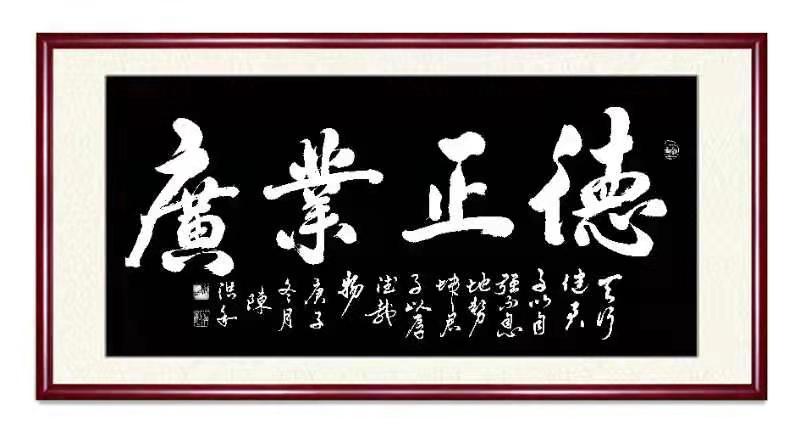 德正業廣
天行
健君
子以自
强不息
地勢
坤君
子以厚
德載
物
庚子
冬月
陳
洪